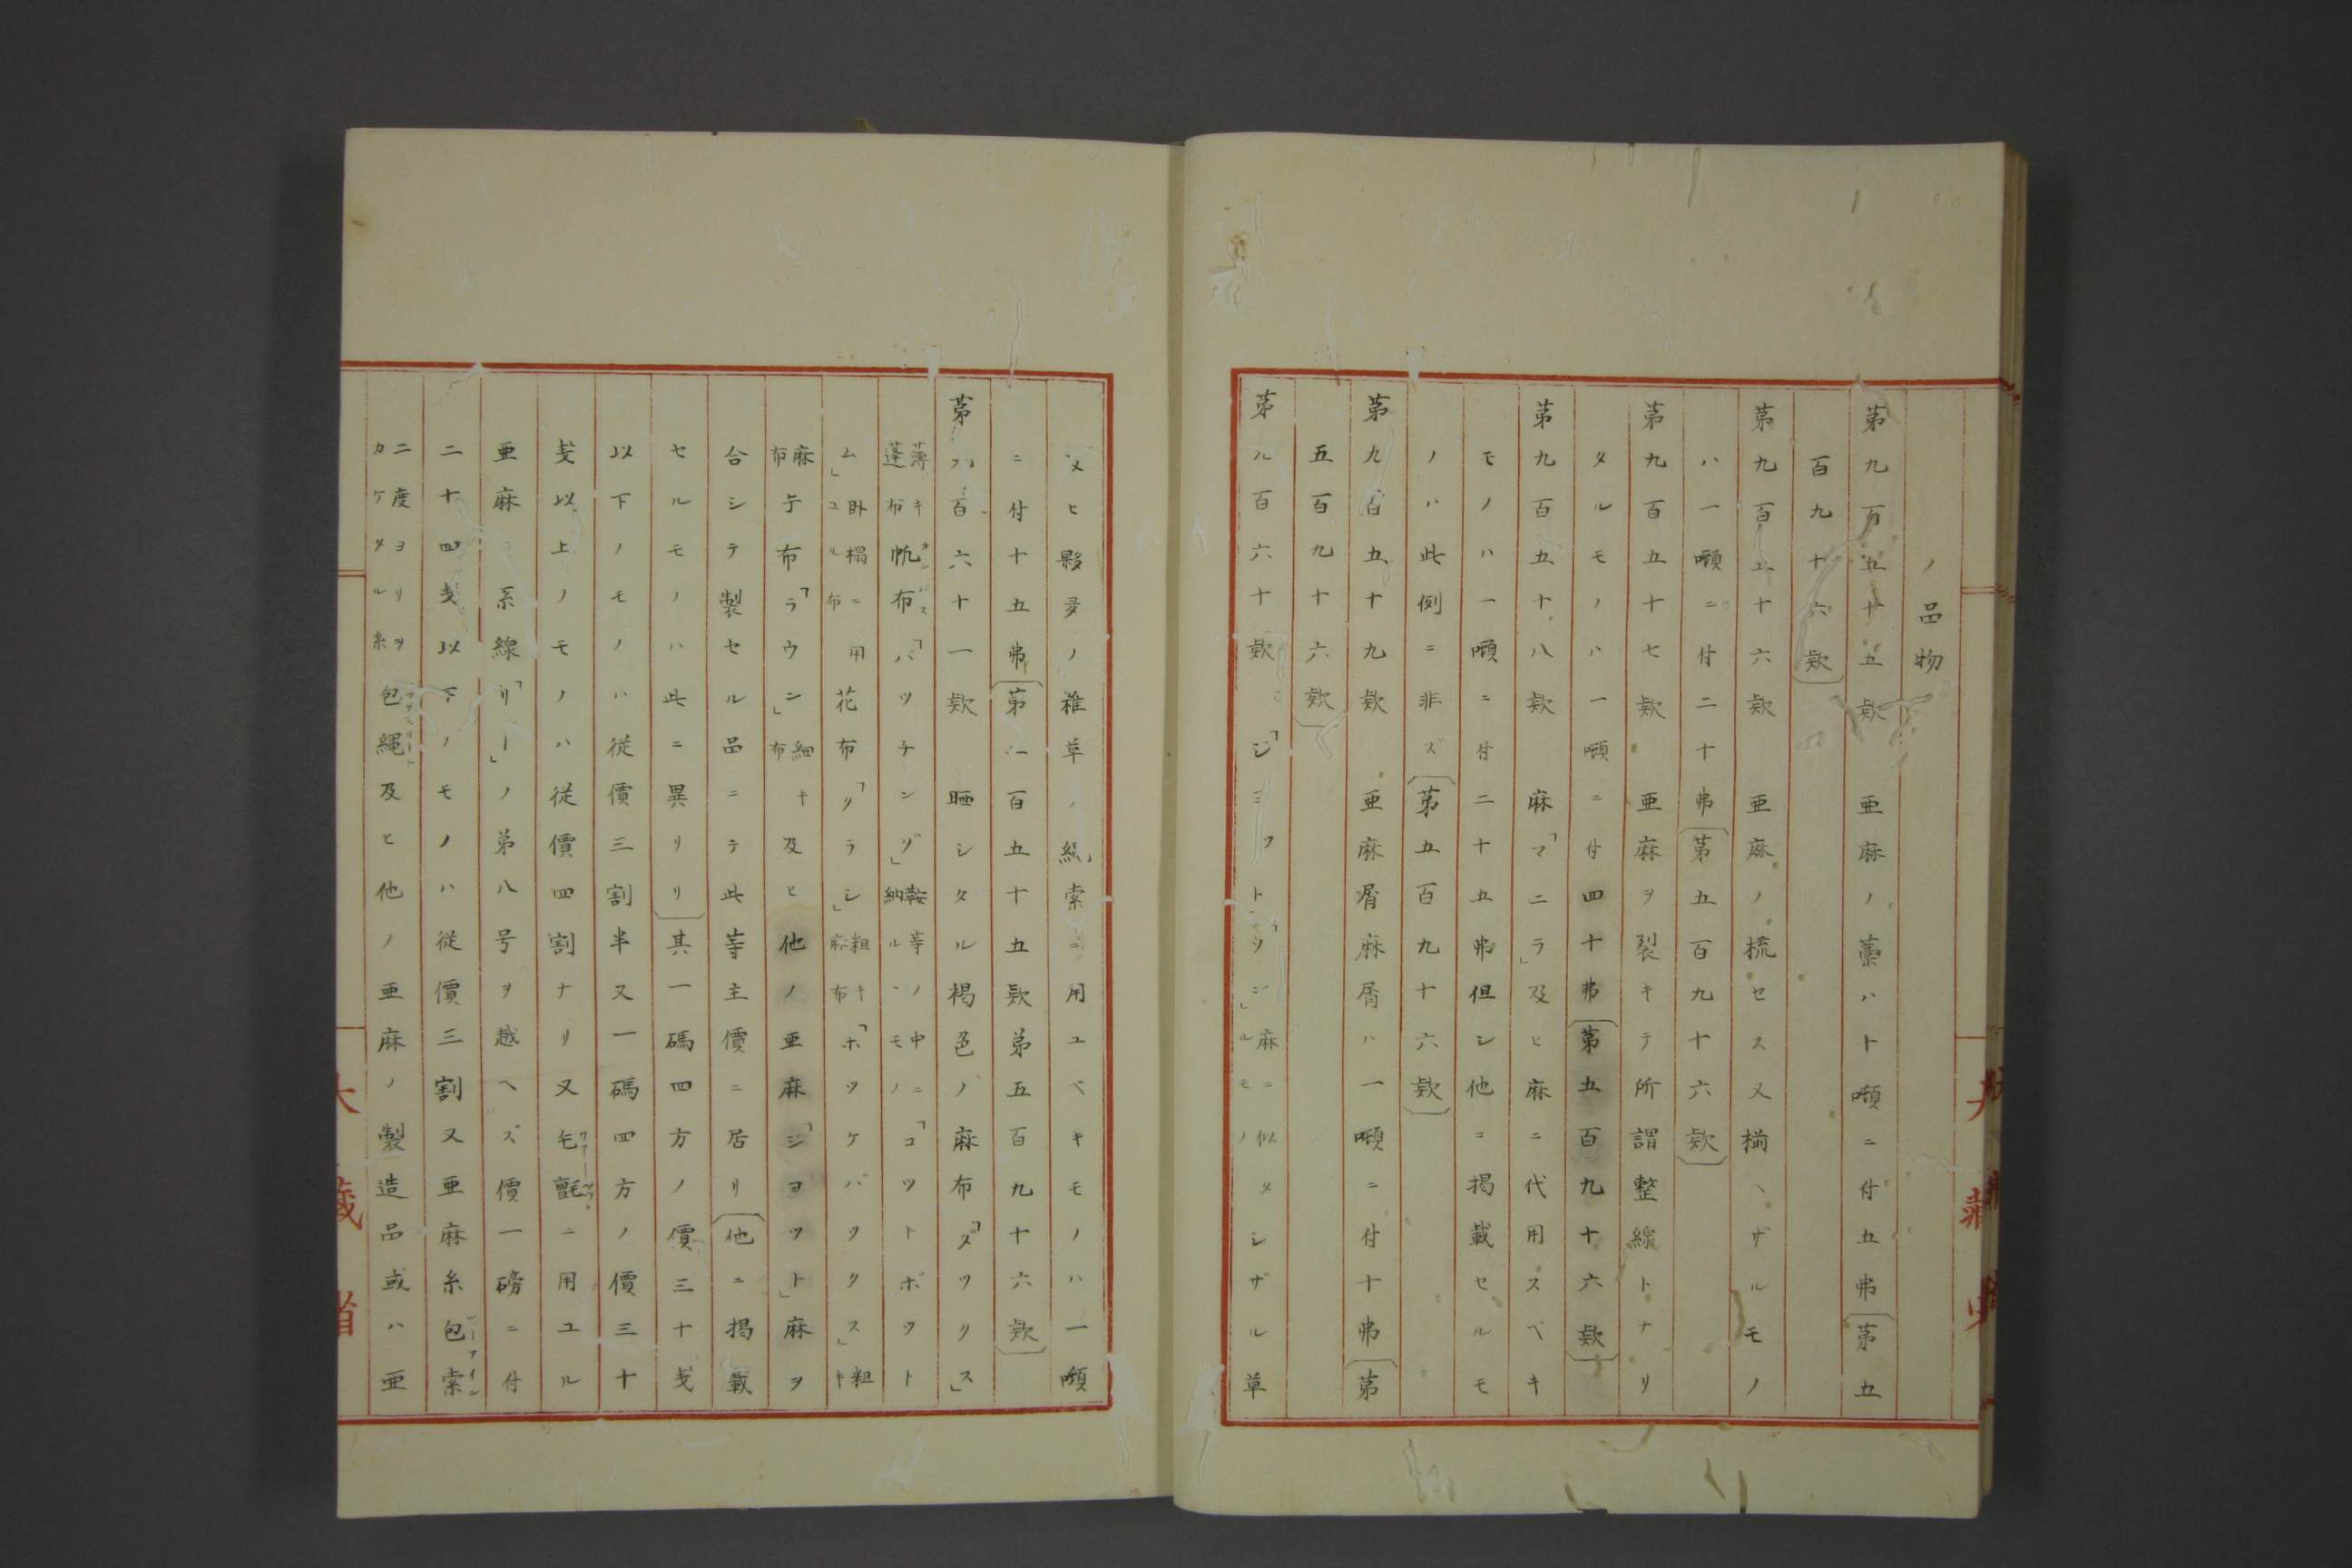 ノ品物
第九百五十五欵　亜麻ノ藁ハト噸ニ付五弗〔第五
百九十六欵〕
第九百五十六欵　亜麻ノ梳セス又櫛ヘザルモノ
ハ一噸ニ付二十弗〔第五百九十六欵〕
第九百五十七欵　亜麻ヲ裂キテ所謂整線トナリ
タルモノハ一噸ニ付四十弗〔第五百九十六欵〕
第九百五十八欵　麻「マニラ」及ヒ麻ニ代用スベキ
モノハ一噸ニ付二十五弗但シ他ニ掲載セルモ
ノハ此例ニ非ズ〔第五百九十六欵〕
第九百五十九欵　亜麻屑麻屑ハ一噸ニ付十弗〔第
五百九十六欵〕
第九百六十欵　「シ　ト　シ」麻ニ似タルモノシザル草
又ヒ夥多ノ雑草ノ縄索ニ用ユベキモノハ一噸
ニ付十五弗〔第一百五十五欵第五百九十六欵〕
第九百六十一欵　晒シタル褐色ノ麻布「ダックス」
薄キ蓬布帆布カンバス「パッチンヅ」鞍等ノ中ニ納ルヽモノ「コットボット
ム」臥榻ニ用ユル布花布「クラシ」粗キ麻布「ホッケバックス」粗キ
麻布手布「ラウン」細布キ及ヒ他ノ亜麻「シヨット」麻ヲ
合シテ製セル品ニテ此等主價ニ居リ〔他ニ掲載
セルモノハ此ニ異リリ〕其一碼四方ノ價三十戔
以下ノモノハ従價三割半又一碼四方ノ價三十
戔以上ノモノハ従價四割ナリ又毛氈ニ用ユル
亜麻ノ系線「リー」ノ第八号ヲ越ヘズ價一磅ニ付
二十四戔以下ノモノハ従價三割又亜麻糸包索
二度ヨリヲカケタル糸包縄及ヒ他ノ亜麻ノ製造品或ハ亜
大藏省